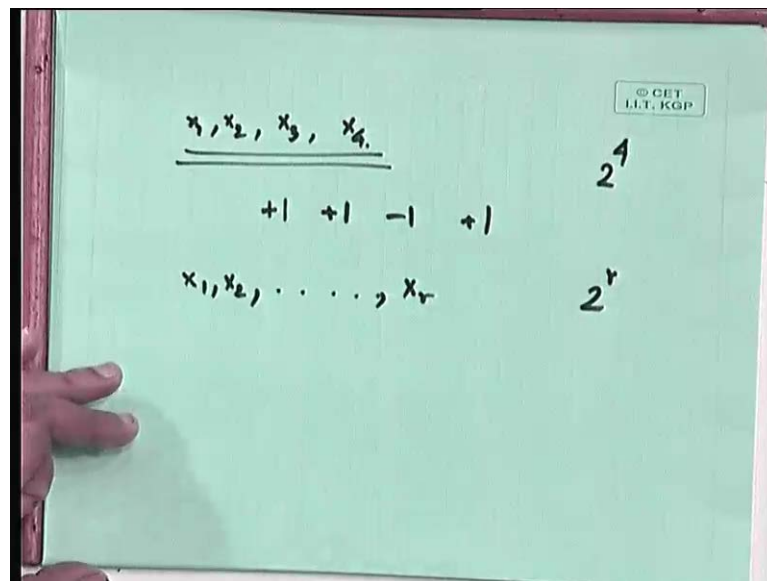 © CET
I.I.T. KGP
x₁, x₂, x₃, x₄. 2⁴
+1 +1 -1 +1
x₁, x₂, . . . . , xᵣ 2ʳ